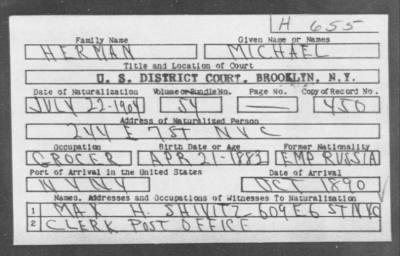 H 655
Family Name Given Name or Names
HERMAN MICHAEL
Title and Location of Court
U. S. DISTRICT COURT, BROOKLYN, N.Y.
Date of Naturalization Volume or Bundle No. Page No. Copy of Record No.
JULY 22-1904 54 — 450
Address of Naturalized Person
244 E 7 ST N Y C
Occupation Birth Date or Age Former Nationality
GROCER APR 21-1883 EMP RUSSIA
Port of Arrival in the United States Date of Arrival
N Y N Y OCT 1890
Names, Addresses and Occupations of Witnesses To Naturalization
1 MAX H. SHIVITZ 609 E 6 ST N Y C
2 CLERK POST OFFICE